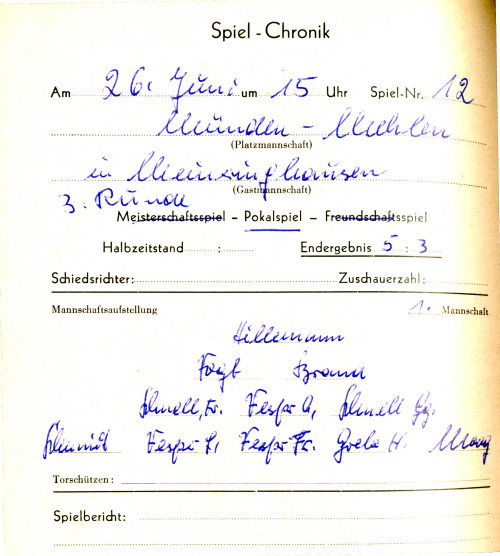 Spiel - Chronik
Am 26. Juni um 15 Uhr Spiel-Nr. 12
Münden - Muehlen
(Platzmannschaft)
in
(Gastmannschaft)
3. Runde
Meisterschaftsspiel - Pokalspiel - Freundschaftsspiel
Halbzeitstand : Endergebnis 5 : 3
Schiedsrichter: Zuschauerzahl:
Mannschaftsaufstellung 1. Mannschaft
Hillemann
Vogt Brand
Schnell, Fr. Vesper A, Schnell Gg.
Schmidt Vesper L, Vesper Fr. Grebe H.
Torschützen:
Spielbericht: